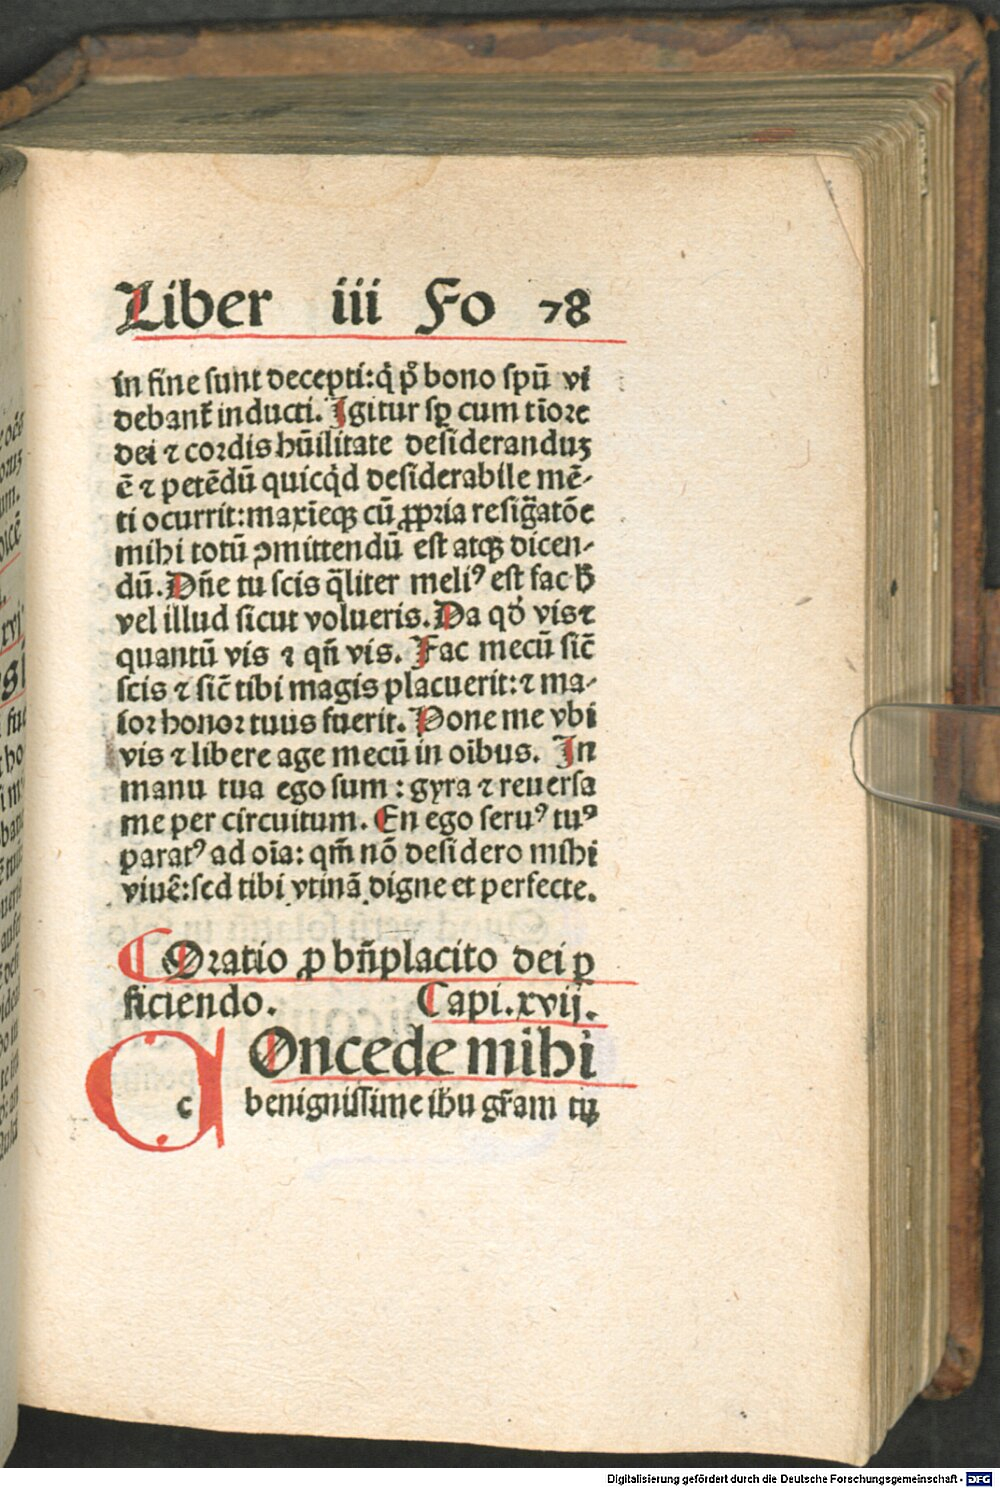 Liber iii Fo 78
in fine sunt decepti:q̇ pͦ bono spū vi
debant̄ inducti. Igitur sꝑ cum tīore
dei ⁊ cordis hūilitate desideranduȝ
ē ⁊ petēdū quicq̇d desiderabile mē-
ti ocurrit:maxīeqꝫ cū ꝓpria resig̅atōe
mihi totū ꝯmittendū est atqꝫ dicen-
dū. Dn̄e tu scis q̄liter meliꝰ est fac h̄
vel illud sicut volueris. Da qd̓ vis ⁊
quantū vis ⁊ qn̄ vis. Fac mecū sic̄
scis ⁊ sic̄ tibi magis placuerit:⁊ ma-
ior honor tuus fuerit. Pone me vbi
vis ⁊ libere age mecū in oībus. In
manu tua ego sum : gyra ⁊ reuersa
me per circuitum. En ego seruꝰ tuꝰ
paratꝰ ad oīa: qm̄ nō desidero mihi
viuē:sed tibi vtinā digne et perfecte.
Oratio ꝓ bn̄placito dei ꝑ
ficiendo. Capi.xvij.
c Oncede mihi
benignissime ih̄u gr̄am tuā
Digitalisierung gefördert durch die Deutsche Forschungsgemeinschaft - DFG